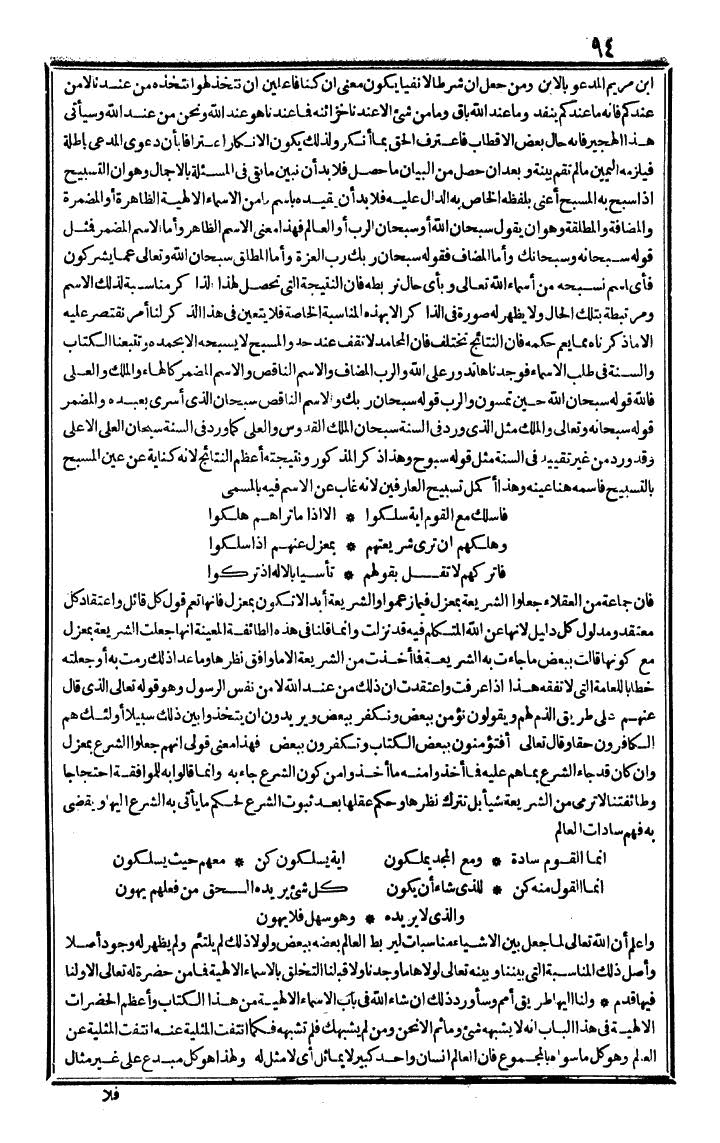 ٩٤
ابن مريم المدعو بالابن ومن جعل ان شرطا لانفيا يكون معنى ان كنا فاعلين ان نتخذ لهوا نتخذه من عندنا لا من
عندكم فانه ما عندكم ينفد وما عند الله باق وما من شئ الا عندنا خزائنه فاعندنا هو عند الله ونحن من عند الله وسيأتى
هذا الهجير فانه حال بعض الاقطاب فاعترف الحق بما أنكر ولذلك يكون الانكار اعترافا بأن دعوى المدعى باطلة
فيلزمه اليمين مالم تقم بينة وبعد ان حصل من البيان ما حصل فلا بد أن نبين ما بقى فى المسئلة بالاجمال وهو ان التسبيح
اذا سبح به المسبح أعنى بلفظه الخاص به الدال عليه فلا بد أن يقيده باسم ما من الاسماء الالهية الظاهرة أو المضمرة
والمضافة والمطلقة وهو ان يقول سبحان الله أو سبحان الرب أو العالم فهذا معنى الاسم الظاهر وأما الاسم المضمر فمثل
قوله سبحانه وسبحانك وأما المضاف فقوله سبحان ربك رب العزة وأما المطلق سبحان الله وتعالى عما يشركون
فأى اسم نسبحه من أسماء الله تعالى وبأى حال نربطه فان النتيجة التى تحصل لهذا الذاكر مناسبة لذلك الاسم
ومرتبطة بتلك الحال ولا يظهر له صورة فى الذاكر الا بهذه المناسبة الخاصة فلا يتعين فى هذا الذكر لنا أمر نقتصر عليه
الا ما ذكرناه مما يعم حكمه فان النتائج تختلف فان المحامد لا تقف عند حد والمسبح لا يسبحه الا بحمده وتتبعنا الكتاب
والسنة فى طلب الاسماء فوجدناها تدور على الله والرب المضاف والاسم الناقص والاسم المضمر كالهاء والملك والعلى
فالله قوله سبحان الله حين تمسون والرب قوله سبحان ربك والاسم الناقص سبحان الذى أسرى بعبده والمضمر
قوله سبحانه وتعالى والملك مثل الذى ورد فى السنة سبحان الملك القدوس والعلى كما ورد فى السنة سبحان العلى الاعلى
وقد ورد من غير تقييد فى السنة مثل قوله سبوح وهذا ذكر المذكور ونتيجته أعظم النتائج لانه كناية عن عين المسبح
بالتسبيح فاسمه هنا عينه وهذا أكمل تسبيح العارفين لانه غاب عن الاسم فيه بالمسمى
فاسلك مع القوم اية سلكوا * الا اذا ما تراهم هلكوا
وهلكهم ان ترى شريعتهم * بمعزل عنهم اذا سلكوا
فاتركهم لا تقل بقولهم * تأسيا بالاله اذ تركوا
فان جماعة من العقلاء جعلوا الشريعة بمعزل فيما زعموا والشريعة أبدا لا تكون بمعزل فانها تعم قول كل قائل واعتقاد كل
معتقد ومدلول كل دليل لانها عن الله المتكلم فيه قد نزلت وانما قلنا فى هذه الطائفة المعينة انها جعلت الشريعة بمعزل
مع كونها قالت ببعض ما جاءت به الشريعة فما أخذت من الشريعة الا ما وافق نظرها وما عدا ذلك رمت به أو جعلته
خطابا للعامة التى لا تفقه هذا اذا عرفت واعتقدت ان ذلك من عند الله لا من نفس الرسول وهو قوله تعالى الذى قال
عنهم على طريق الذم لهم ويقولون نؤمن ببعض ونكفر ببعض ويريدون ان يتخذوا بين ذلك سبيلا أولئك هم
الكافرون حقا وقال تعالى أفتؤمنون ببعض الكتاب وتكفرون ببعض فهذا معنى قولى انهم جعلوا الشرع بمعزل
وان كان قد جاء الشرع بما هم عليه فما أخذوا منه ما أخذوا من كون الشرع جاء به وانما قالوا به للموافقة احتجاجا
وطائفتنا لا ترمى من الشريعة شيأ بل تترك نظرها وحكم عقلها بعد ثبوت الشرع لحكم ما يأتى به الشرع اليها ويقضى
به فهم سادات العالم
انما القوم سادة * ومع المجد يملكون اية يسلكون كن * معهم حيث يسلكون
انما القول منه كن * للذى شاء أن يكون كل شئ يريده الحق من فعلهم يهون
والذى لا يريده * وهو سهل فلا يهون
واعلم أن الله تعالى لما جعل بين الاشياء مناسبات ليربط العالم بعضه ببعض ولولا ذلك لم يلتئم ولم يظهر له وجود أصلا
وأصل ذلك المناسبة التى بيننا وبينه تعالى لولاها ما وجدنا ولا قبلنا التخلق بالاسماء الالهية فما من حضرة له تعالى الا ولنا
فيها قدم * ولنا اليها طريق أمم وسأورد ذلك ان شاء الله فى باب الاسماء الالهية من هذا الكتاب وأعظم الحضرات
الالهية فى هذا الباب انه لا يشبهه شئ وما ثم الا نحن ومن لم يشبهك فلم تشبهه فكما انتفت المثلية عنه انتفت المثلية عن
العالم وهو كل ما سواه بالمجموع فان العالم انسان واحد كبير لا يماثل أى لا مثل له ولهذا هو كل مبدع على غير مثال
فلا